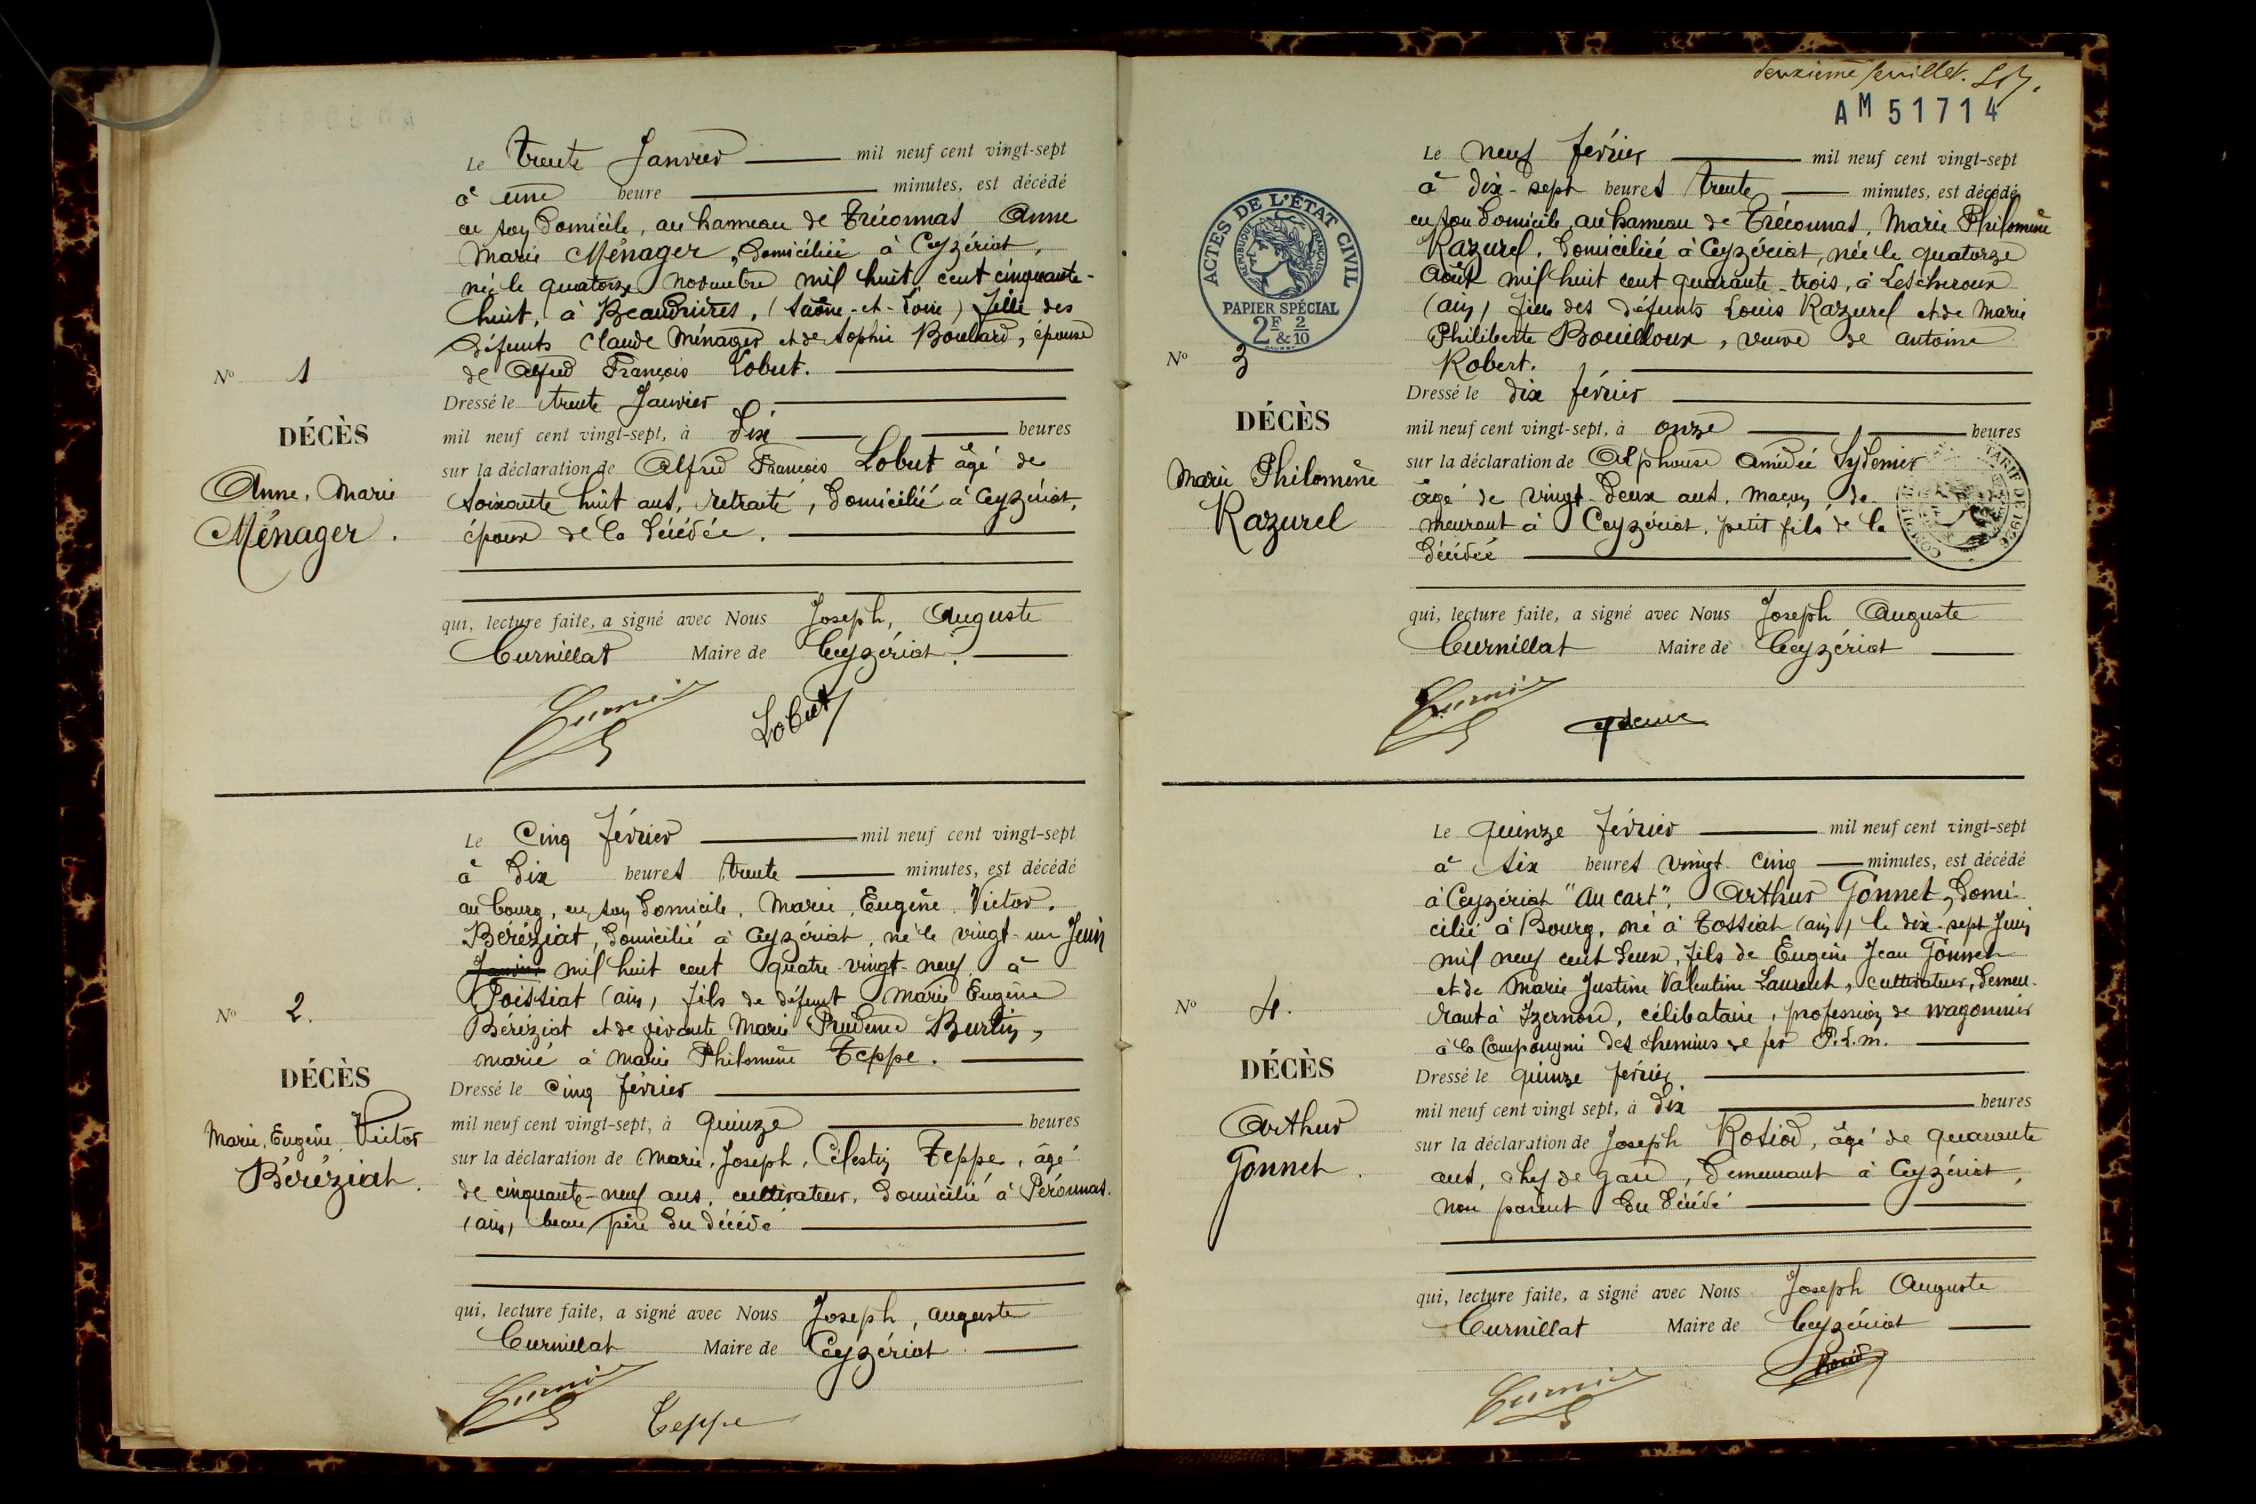 Le trente Janvier mil neuf cent vingt-sept
à une heure minutes, est décédé
en son domicile, au hameau de Tréconnas Anne
Marie Ménager, domiciliée à Ceyzériat,
née le quatorze novembre mil huit cent cinquante-
huit, à Beaudrières, (Saône-et-Loire) fille des
défunts Claude Ménager et de Sophie Boullard, épouse
de Alfred François Lobut.
Nº 1
DÉCÈS
Anne, Marie
Ménager.
Dressé le trente Janvier
mil neuf cent vingt-sept, à dix heures
sur la déclaration de Alfred François Lobut âgé de
soixante huit ans, retraité, domicilié à Ceyzériat,
époux de la décédée.
qui, lecture faite, a signé avec Nous Joseph, Auguste
Curnillat Maire de Ceyzériat.
Lobut
Le Cinq février mil neuf cent vingt-sept
à dix heures trente minutes, est décédé
au bourg, en son domicile, Marie, Eugène Victor.
Béréziat, domicilié à Ceyzériat, né le vingt-un Juin
Janvier mil huit cent quatre-vingt-neuf à
Poissiat (ain, fils de défunt Marie Eugène
Béréziat et de vivante Marie Prudence Burtin,
marié à Marie Philomène Teppe.
Nº 2.
DÉCÈS
Marie, Eugène, Victor
Béréziat.
Dressé le cinq février
mil neuf cent vingt-sept, à quinze heures
sur la déclaration de Marie, Joseph, Célestin Teppe, âgé
de cinquante-neuf ans, cultivateur, domicilié à Péronnas.
(ain, beau père du décédé
qui, lecture faite, a signé avec Nous Joseph, auguste
Curnillat Maire de Ceyzériat
Teppe
deuxième feuillet.
AM 51714
Le neuf février mil neuf cent vingt-sept
à dix-sept heures trente minutes, est décédé
en son domicile, au hameau de Tréconnas, Marie Philomène
Razurel, domiciliée à Ceyzériat, née le quatorze
Août mil huit cent quarante-trois, à Lescheroux
(ain) fille des défunts Louis Razurel et de Marie
Philiberte Bouilloux, veuve de antoine
Robert.
ACTES DE L'ÉTAT CIVIL
RÉPUBLIQUE FRANÇAISE
PAPIER SPÉCIAL
2F & 2/10
Nº 3
DÉCÈS
Marie Philomène
Razurel
Dressé le dix février
mil neuf cent vingt-sept, à onze heures
sur la déclaration de Alphonse Amédée Sydenier
âgé de vingt-deux ans, maçon, de-
meurant à Ceyzériat, petit fils de la
décédée
qui, lecture faite, a signé avec Nous Joseph Auguste
Curnillat Maire de Ceyzériat
Le quinze février mil neuf cent vingt-sept
à six heures vingt cinq minutes, est décédé
à Ceyzériat "Au cart", Arthur Gonnet, domi-
cilié à Bourg, né à Tossiat (ain, le dix-sept Juin
mil neuf cent deux, fils de Eugène Jean Gonnet
et de Marie Justine Valentine Laurent, cultivateurs, demeu-
rant à Izernore, célibataire, profession de wagonnier
à la Compagnie des chemins de fer P.L.M.
Nº 4.
DÉCÈS
Arthur
Gonnet.
Dressé le quinze février
mil neuf cent vingt sept, à dix heures
sur la déclaration de Joseph Rosiod, âgé de quarante
ans, chef de gare, demeurant à Ceyzériat,
non parent du décédé
qui, lecture faite, a signé avec Nous Joseph Auguste
Curnillat Maire de Ceyzériat